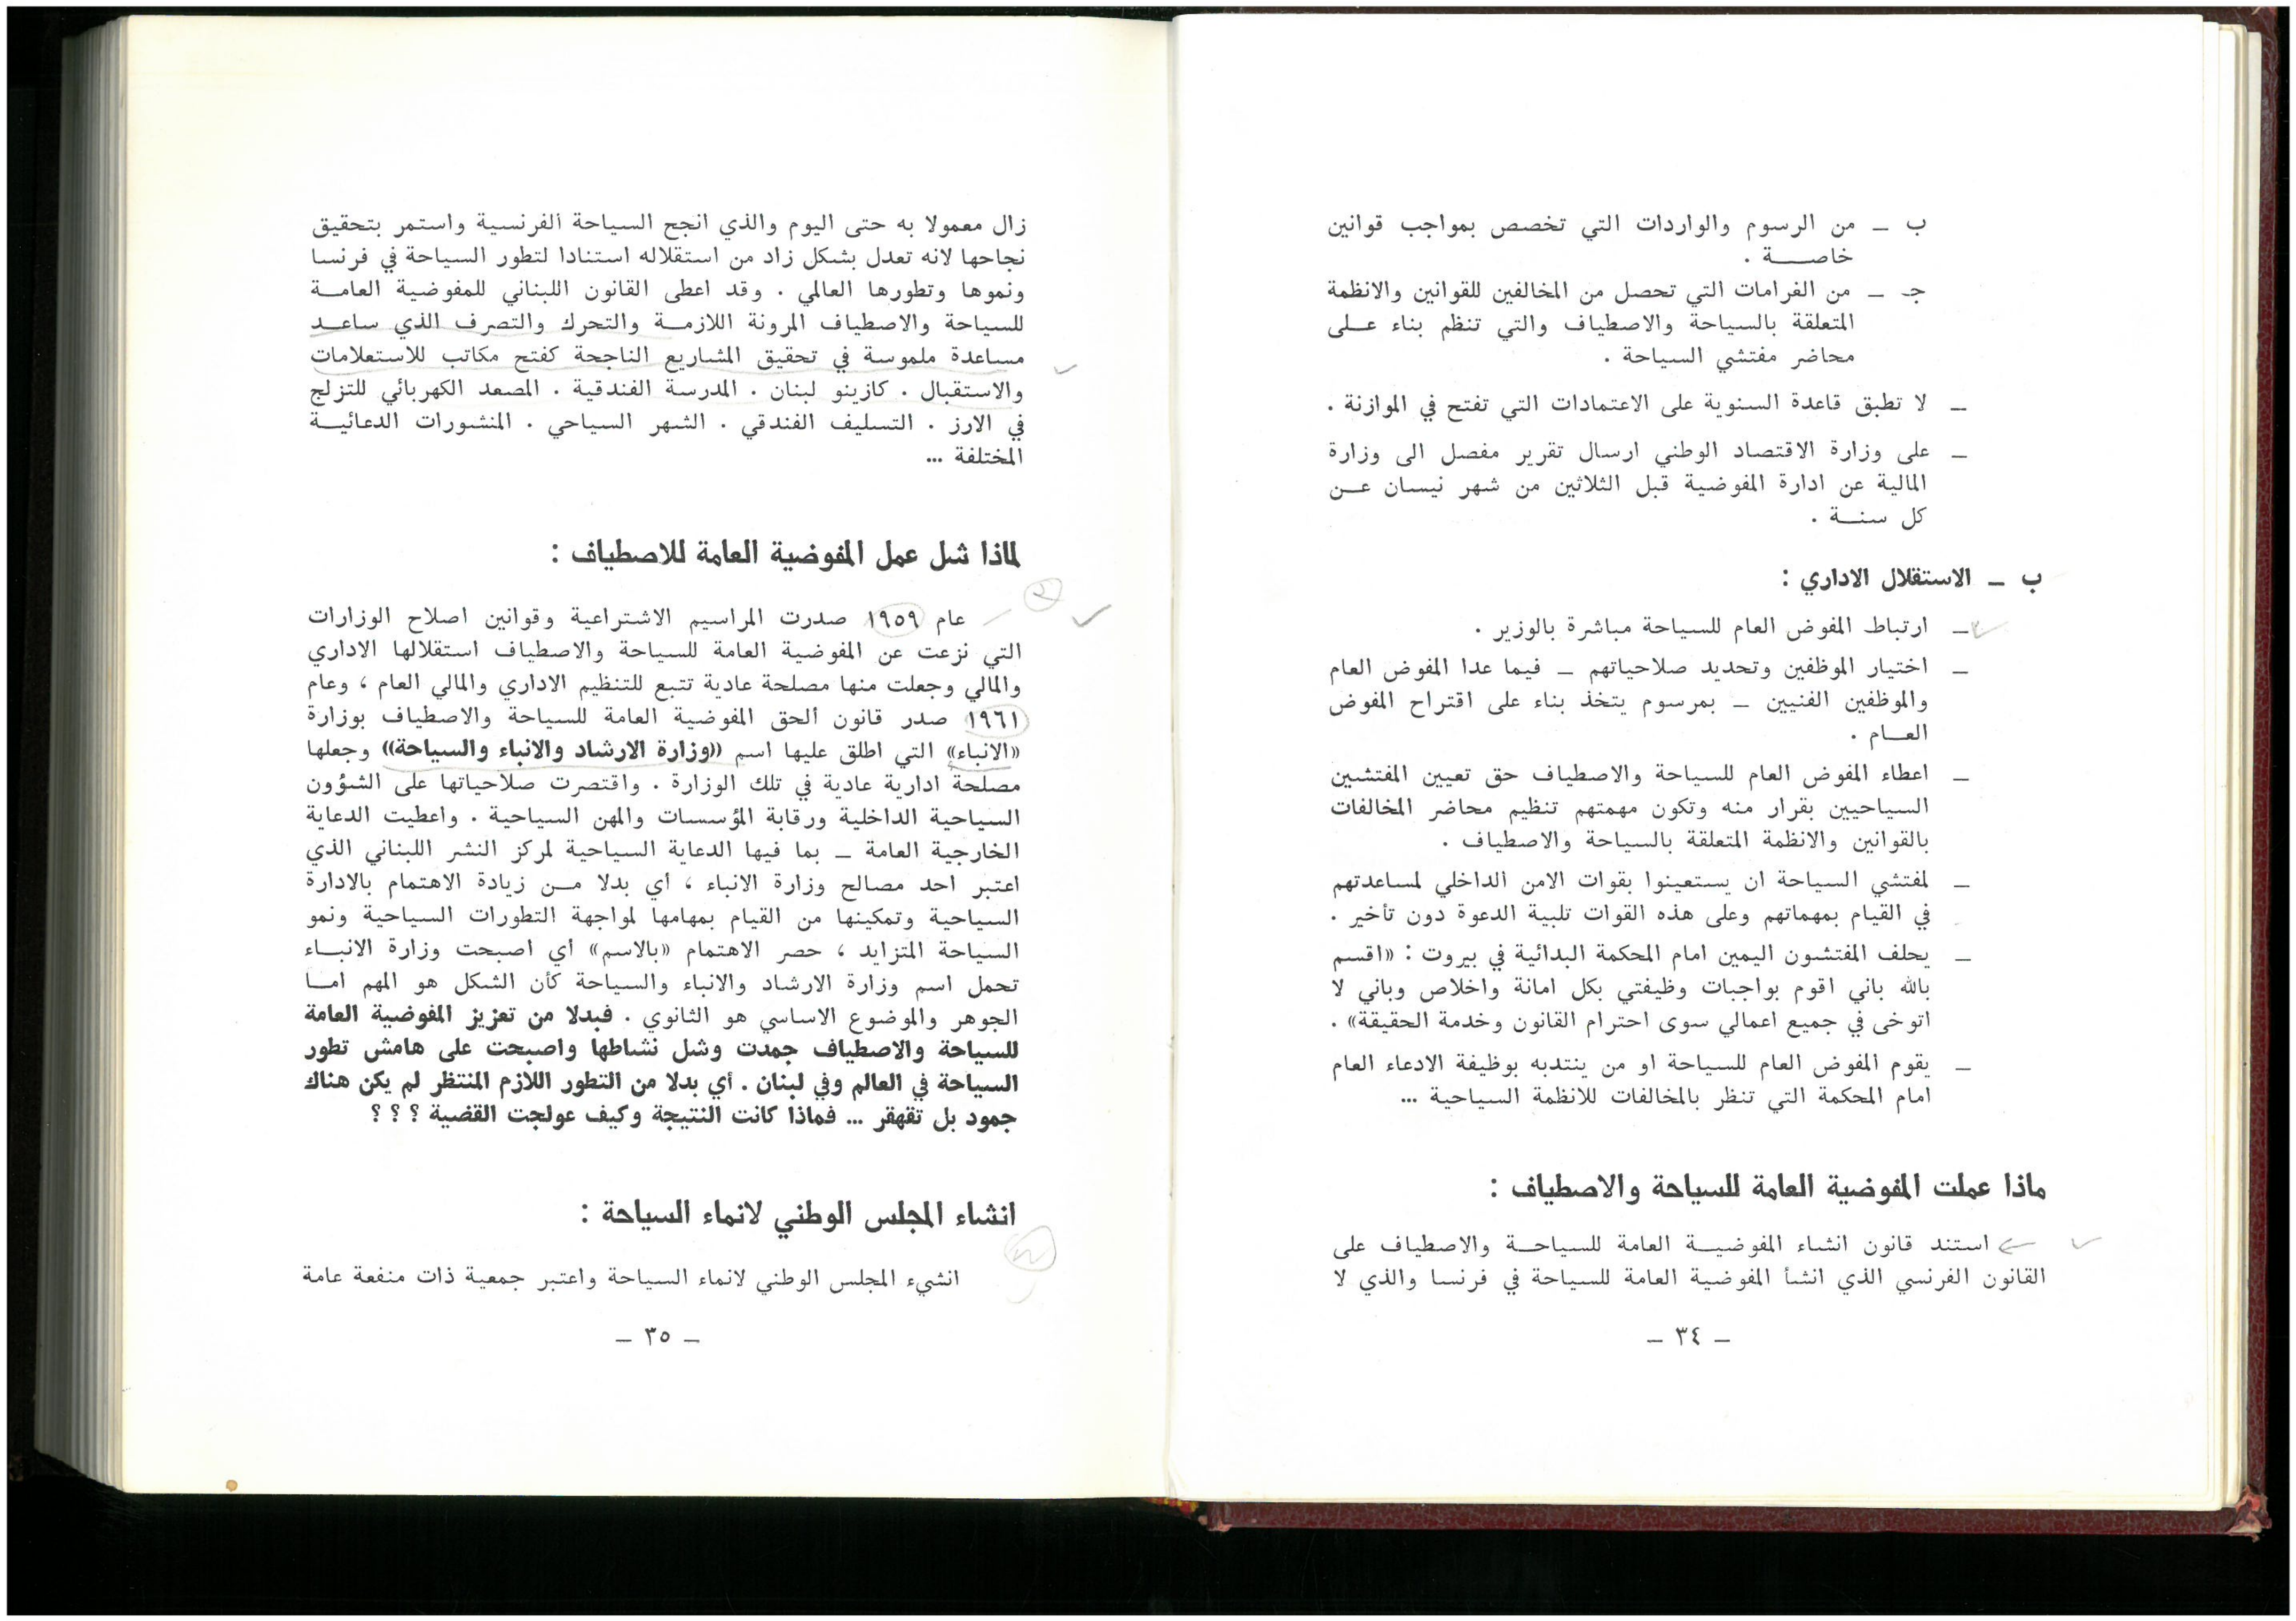 ب ـ من الرسوم والواردات التي تخصص بمواجب قوانين
خاصـــة .
جـ ـ من الغرامات التي تحصل من المخالفين للقوانين والانظمة
المتعلقة بالسياحة والاصطياف والتي تنظم بناء عـلى
محاضر مفتشي السياحة .
ـ لا تطبق قاعدة السنوية على الاعتمادات التي تفتح في الموازنة .
ـ على وزارة الاقتصاد الوطني ارسال تقرير مفصل الى وزارة
المالية عن ادارة المفوضية قبل الثلاثين من شهر نيسان عـن
كل سنـة .
ب ـ الاستقلال الاداري :
ـ ارتباط المفوض العام للسياحة مباشرة بالوزير .
ـ اختيار الموظفين وتحديد صلاحياتهم ـ فيما عدا المفوض العام
والموظفين الفنيين ـ بمرسوم يتخذ بناء على اقتراح المفوض
العـام .
ـ اعطاء المفوض العام للسياحة والاصطياف حق تعيين المفتشين
السياحيين بقرار منه وتكون مهمتهم تنظيم محاضر المخالفات
بالقوانين والانظمة المتعلقة بالسياحة والاصطياف .
ـ لمفتشي السياحة ان يستعينوا بقوات الامن الداخلي لمساعدتهم
في القيام بمهماتهم وعلى هذه القوات تلبية الدعوة دون تأخير .
ـ يحلف المفتشون اليمين امام المحكمة البدائية في بيروت : «اقسم
بالله باني اقوم بواجبات وظيفتي بكل امانة واخلاص وباني لا
اتوخى في جميع اعمالي سوى احترام القانون وخدمة الحقيقة» .
ـ يقوم المفوض العام للسياحة او من ينتدبه بوظيفة الادعاء العام
امام المحكمة التي تنظر بالمخالفات للانظمة السياحية ...
ماذا عملت المفوضية العامة للسياحة والاصطياف :
استند قانون انشاء المفوضيـة العامة للسياحـة والاصطياف على
القانون الفرنسي الذي انشأ المفوضية العامة للسياحة في فرنسا والذي لا
ـ ٣٤ ـ
زال معمولا به حتى اليوم والذي انجح السياحة الفرنسية واستمر بتحقيق
نجاحها لانه تعدل بشكل زاد من استقلاله استنادا لتطور السياحة في فرنسا
ونموها وتطورها العالمي . وقد اعطى القانون اللبناني للمفوضية العامـة
للسياحة والاصطياف المرونة اللازمـة والتحرك والتصرف الذي ساعـد
مساعدة ملموسة في تحقيق المشاريع الناجحة كفتح مكاتب للاستعلامات
والاستقبال . كازينو لبنان . المدرسة الفندقية . المصعد الكهربائي للتزلج
في الارز . التسليف الفندقي . الشهر السياحي . المنشورات الدعائيـة
المختلفة ...
لماذا شل عمل المفوضية العامة للاصطياف :
٢
عام ١٩٥٩ صدرت المراسيم الاشتراعية وقوانين اصلاح الوزارات
التي نزعت عن المفوضية العامة للسياحة والاصطياف استقلالها الاداري
والمالي وجعلت منها مصلحة عادية تتبع للتنظيم الاداري والمالي العام ، وعام
١٩٦١ صدر قانون ألحق المفوضية العامة للسياحة والاصطياف بوزارة
«الانباء» التي اطلق عليها اسم «وزارة الارشاد والانباء والسياحة» وجعلها
مصلحة ادارية عادية في تلك الوزارة . واقتصرت صلاحياتها على الشؤون
السياحية الداخلية ورقابة المؤسسات والمهن السياحية . واعطيت الدعاية
الخارجية العامة ـ بما فيها الدعاية السياحية لمركز النشر اللبناني الذي
اعتبر احد مصالح وزارة الانباء ، أي بدلا مـن زيادة الاهتمام بالادارة
السياحية وتمكينها من القيام بمهامها لمواجهة التطورات السياحية ونمو
السياحة المتزايد ، حصر الاهتمام «بالاسم» أي اصبحت وزارة الانبـاء
تحمل اسم وزارة الارشاد والانباء والسياحة كأن الشكل هو المهم امـا
الجوهر والموضوع الاساسي هو الثانوي . فبدلا من تعزيز المفوضية العامة
للسياحة والاصطياف جمدت وشل نشاطها واصبحت على هامش تطور
السياحة في العالم وفي لبنان . أي بدلا من التطور اللازم المنتظر لم يكن هناك
جمود بل تقهقر ... فماذا كانت النتيجة وكيف عولجت القضية ؟ ؟ ؟
انشاء المجلس الوطني لانماء السياحة :
انشيء المجلس الوطني لانماء السياحة واعتبر جمعية ذات منفعة عامة
ـ ٣٥ ـ